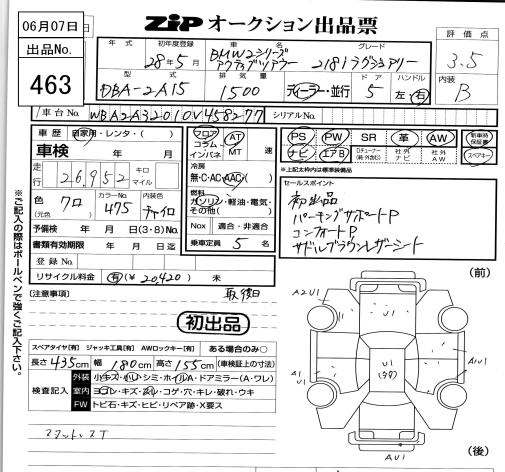 06月07日
ZiP オークション出品票
出品No.
463
年式
初年度登録
28年5月
車名
BMW2シリーズ
アクティブツアラー
グレード
218iラグジュアリー
評価点
3.5
型式
DBA-2A15
排気量
1500
ディーラー・並行
ドア
5
ハンドル
左・右
内装
B
車台No.
WBA2A32010V458277
シリアルNo.
車歴 自家用・レンタ・( )
フロア
コラム
インパネ
AT
MT
速
PS PW SR 革 AW
新車時保証書
ナビ エアB
社外ナビ
社外AW
スペアキー
車検 年 月
走行
26,952
キロ
マイル
冷房
無・C・AC・AAC・( )
※上記太枠内は標準装備品
色
(元色)
クロ
カラーNo.
475
内装色
チャイロ
燃料
ガソリン・軽油・電気・
その他( )
セールスポイント
初出品
パーキングサポートP
コンフォートP
サドルブラウンレザーシート
予備検 年 月 日(3・8)No.
Nox 適合・非適合
書類有効期限 年 月 日迄
乗車定員 5 名
登録No.
リサイクル料金 有(¥20,420) 未
(前)
【注意事項】
取後日
初出品
スペアタイヤ【有】 ジャッキ工具【有】 AWロックキー【有】 ある場合のみ○
長さ435cm 幅180cm 高さ155cm (車検証上の寸法)
検査記入
外装 小キズ・凹・シミ・ホイルA・ドアミラー(A・ワレ)
室内 ヨゴレ・キズ・スレ・コゲ・穴・キレ・破れ・ウキ
FW トビ石・キズ・ヒビ・リペア跡・X要ス
※ご記入の際はボールペンで強くご記入下さい。
A2U1
U1
A1
U1
A1U1
AU1
(後)